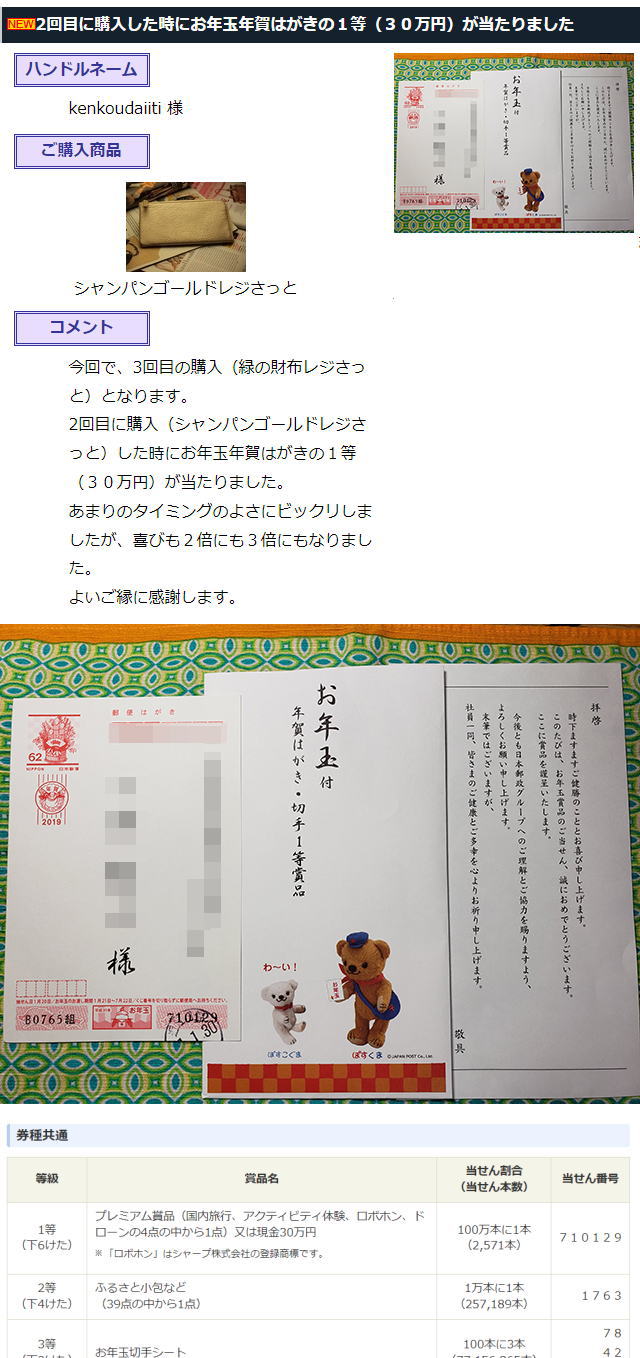 NEW2回目に購入した時にお年玉年賀はがきの１等（３０万円）が当たりました
ハンドルネーム
kenkoudaiiti 様
ご購入商品
シャンパンゴールドレジさっと
コメント
今回で、3回目の購入（緑の財布レジさっ
と）となります。
2回目に購入（シャンパンゴールドレジさ
っと）した時にお年玉年賀はがきの１等
（３０万円）が当たりました。
あまりのタイミングのよさにビックリしま
したが、喜びも２倍にも３倍にもなりまし
た。
よいご縁に感謝します。
郵便はがき
62
NIPPON 日本郵便
2019
様
B0765組
お年玉
710129
お年玉付
年賀はがき・切手１等賞品
わ〜い！
お年玉
ぽすこぐま
ぽすくま
© JAPAN POST Co., Ltd.
拝啓
時下ますますご健勝のこととお喜び申し上げます。
このたびは、お年玉賞品のご当せん、誠におめでとうございます。
ここに賞品を謹呈いたします。
今後とも日本郵政グループへのご理解とご協力を賜りますよう、
よろしくお願い申し上げます。
末筆ではございますが、
社員一同、皆さまのご健康とご多幸を心よりお祈り申し上げます。
敬具
券種共通
等級 賞品名 当せん割合 当せん番号
（当せん本数）
1等
（下6けた）
プレミアム賞品（国内旅行、アクティビティ体験、ロボホン、ド
ローンの4点の中から1点）又は現金30万円
※「ロボホン」はシャープ株式会社の登録商標です。
100万本に1本
（2,571本）
710129
2等
（下4けた）
ふるさと小包など
（39点の中から1点）
1万本に1本
（257,189本）
1763
3等
お年玉切手シート
100本に3本
78
42